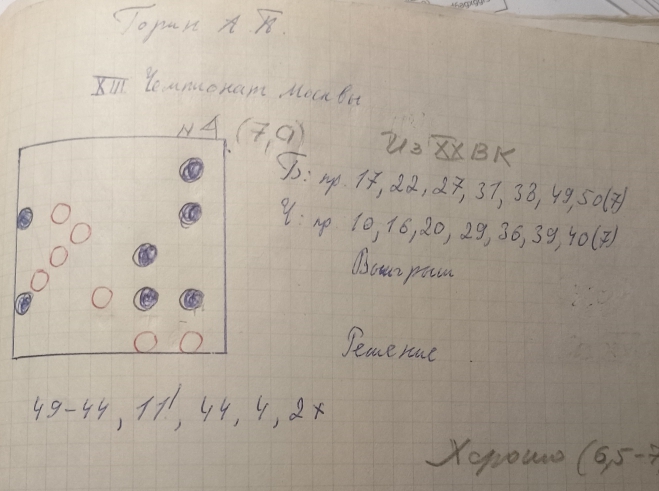 Горин А. П.
XIII Чемпионат Москвы
№ 4 (7,0)
Из XX ВК
Б: пр. 17, 22, 27, 31, 38, 49, 50 (7)
Ч: пр. 10, 16, 20, 29, 36, 39, 40 (7)
Выигрыш
Решение
49-44, 11!, 44, 4, 2x
Хорошо (6,5-7